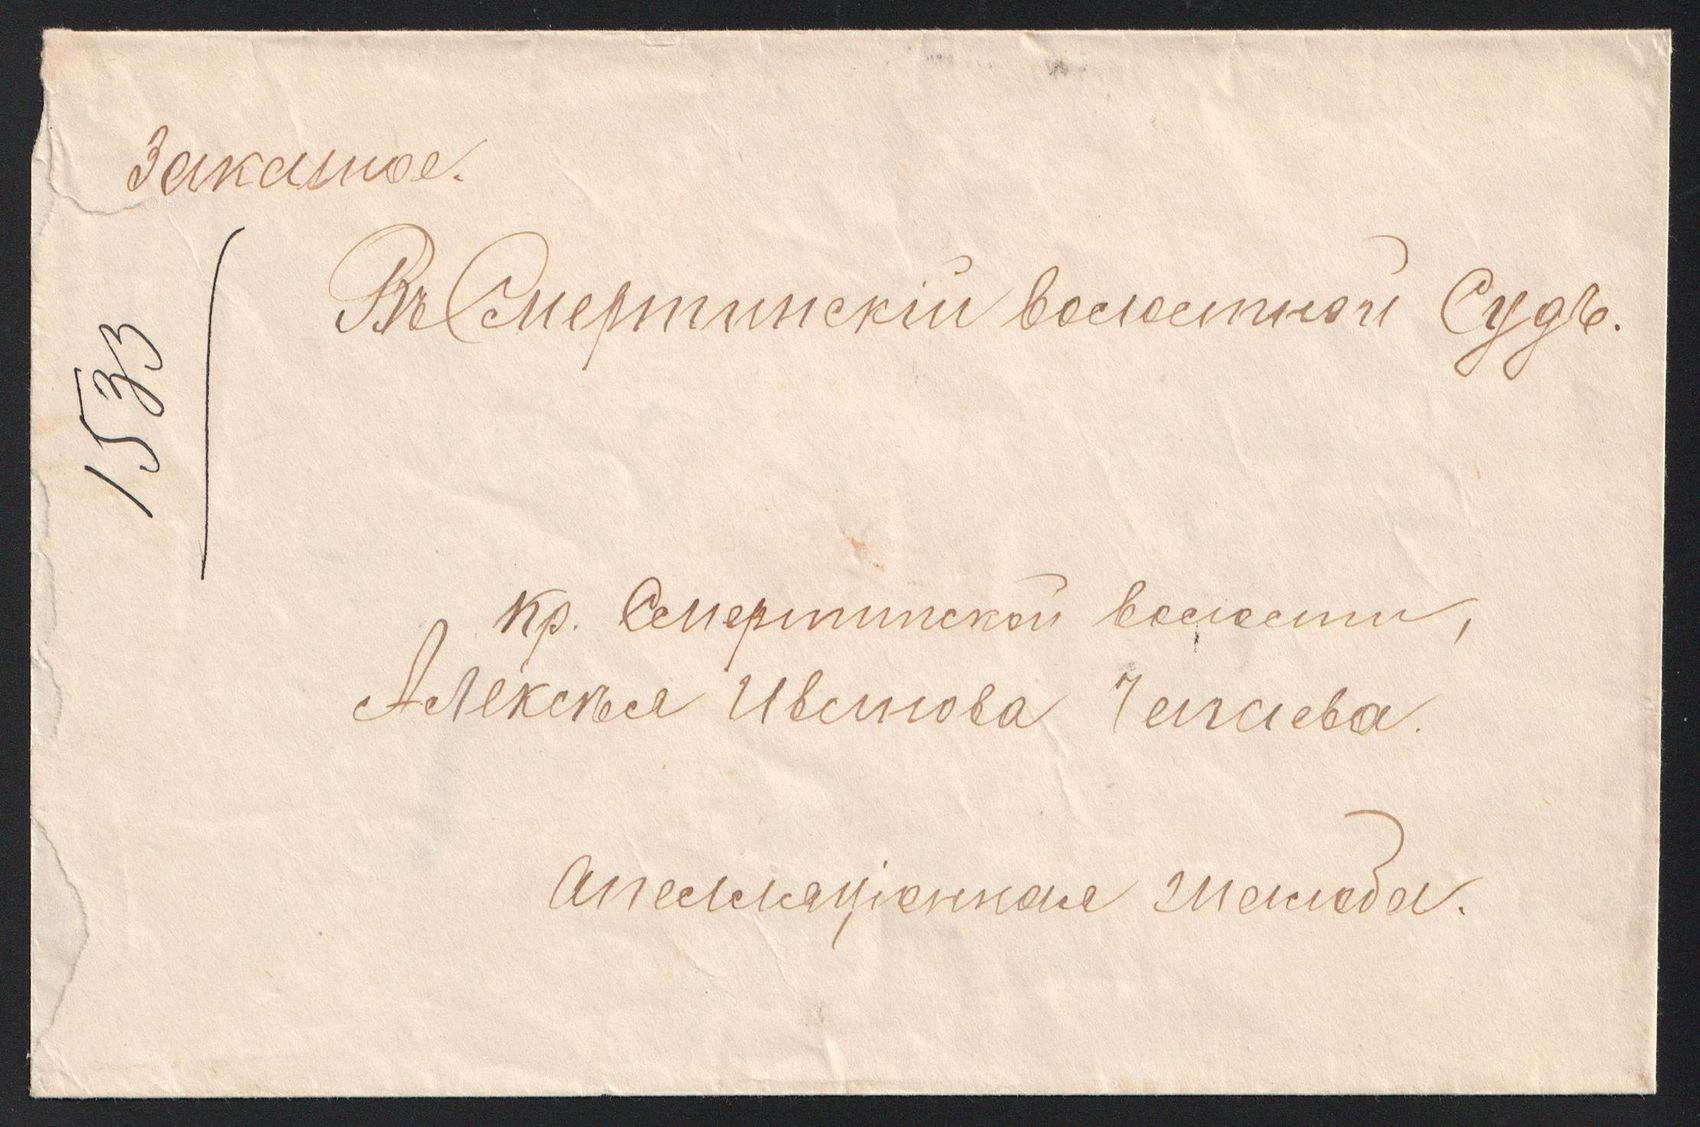 Заказное.
1533
Въ Смертинскій волостной Судъ.
кр. Смертинской волости,
Алексѣя Иванова
Апелляціонная жалоба.